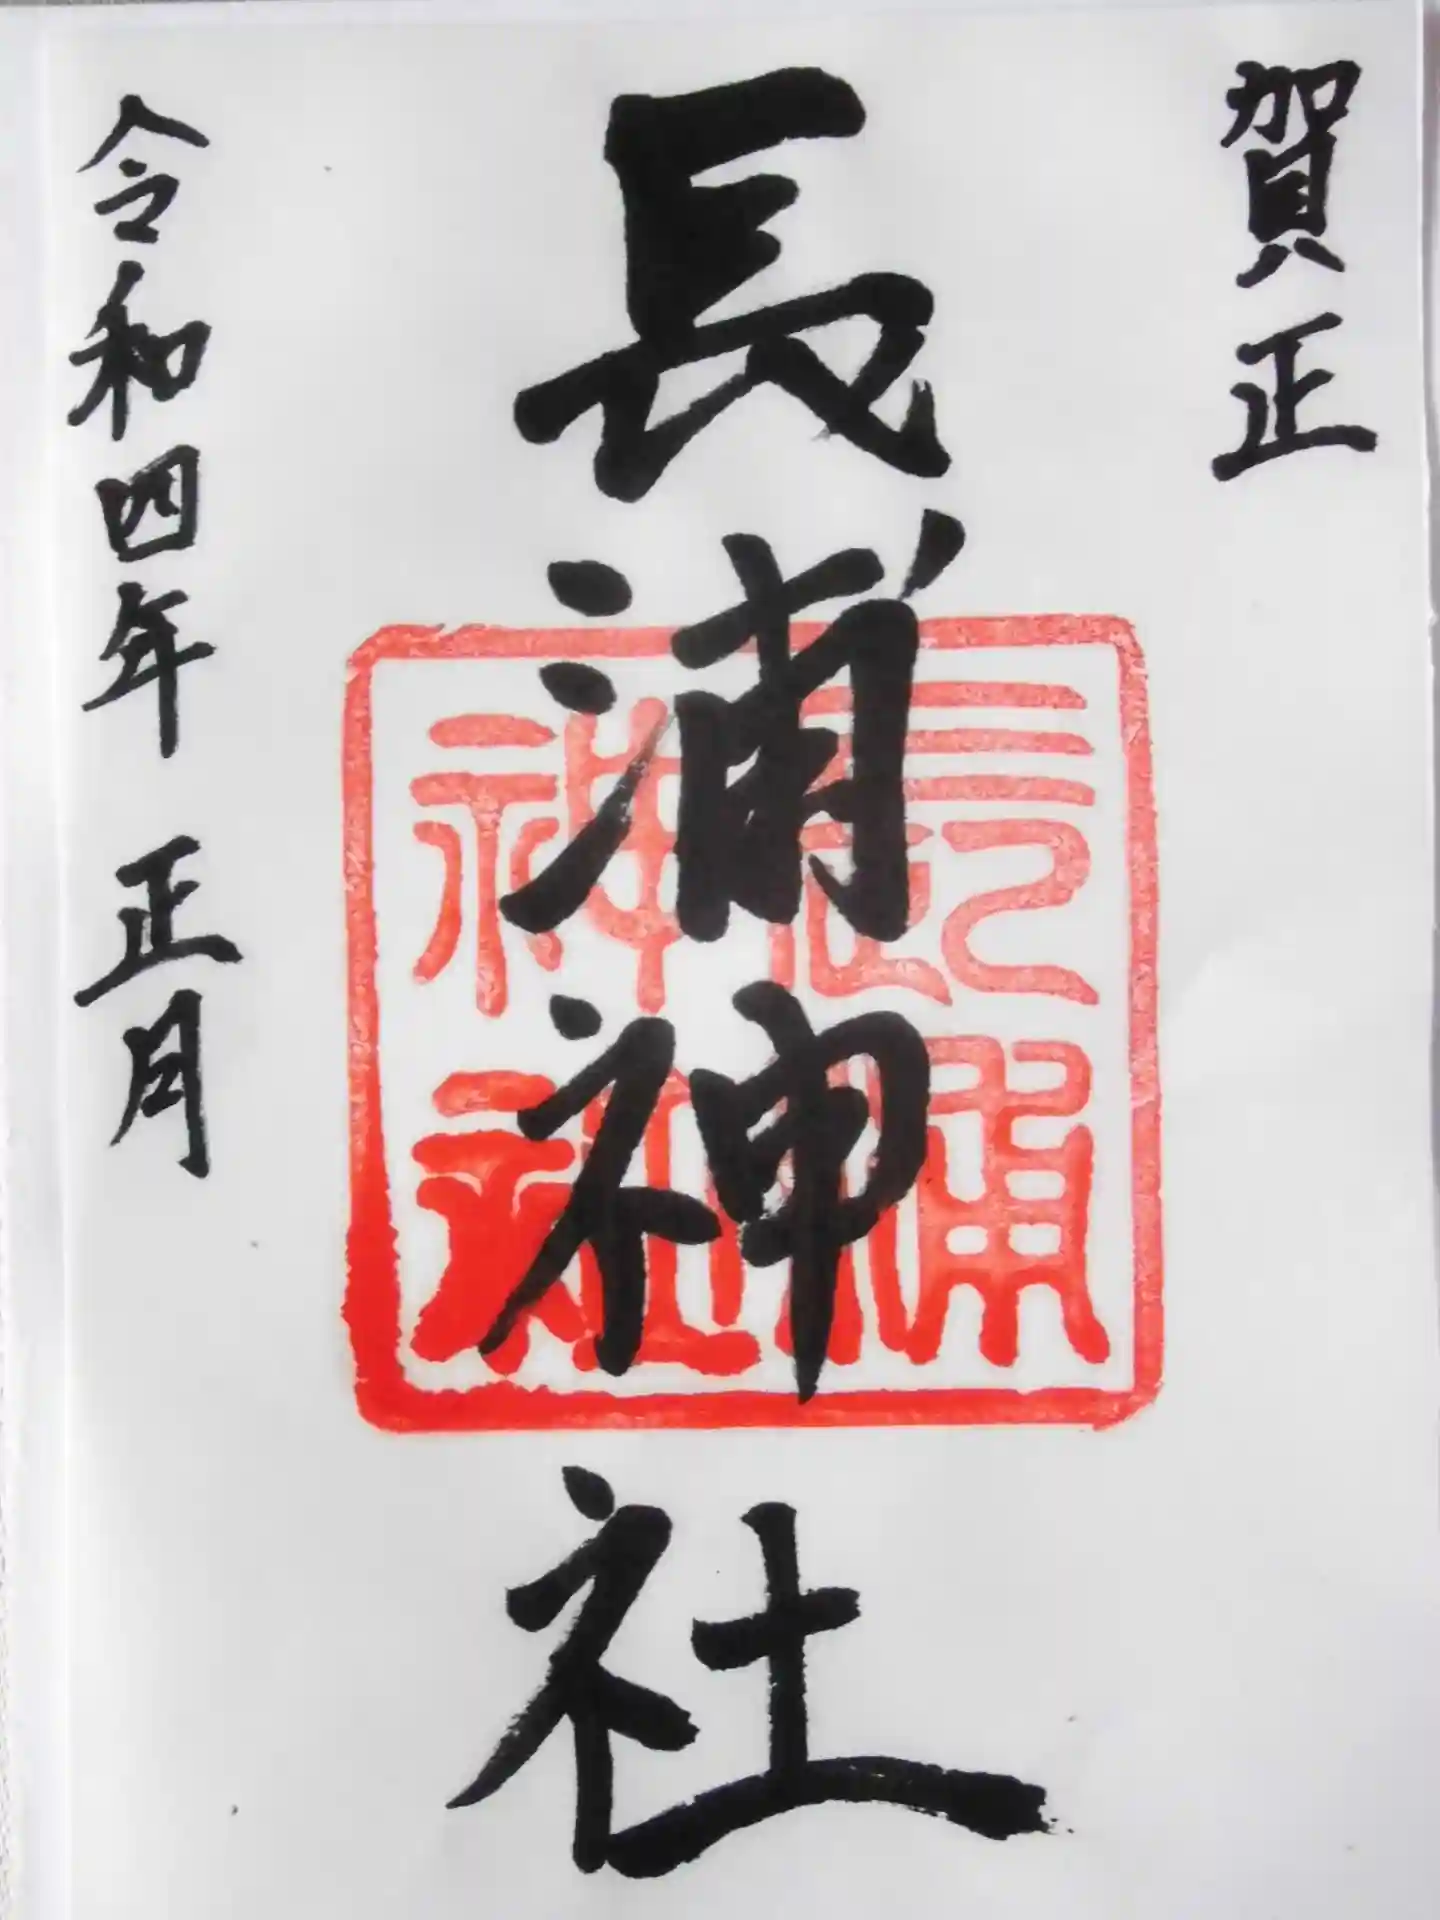 賀正
長浦神社
長浦
神社
令和四年 正月